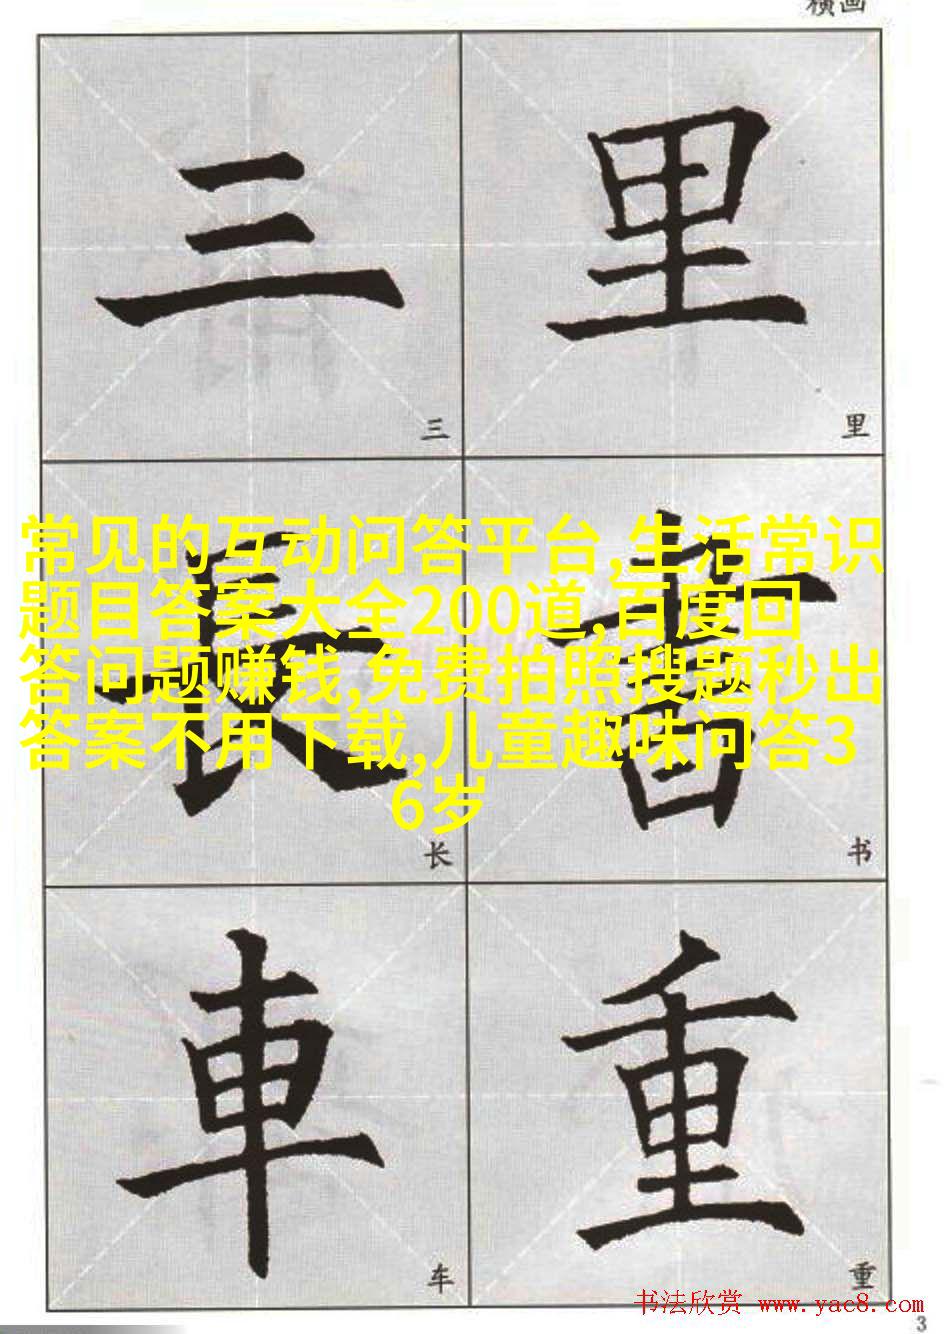 横画
三 里
三 里
常见的互动问答平台,生活常识
题目答案大全200道,百度回
答问题赚钱,免费拍照搜题秒出
答案不用下载,儿童趣味问答3
6岁
長 書
长 书
車 重
车 重
书法欣赏 www.yac8.com
3